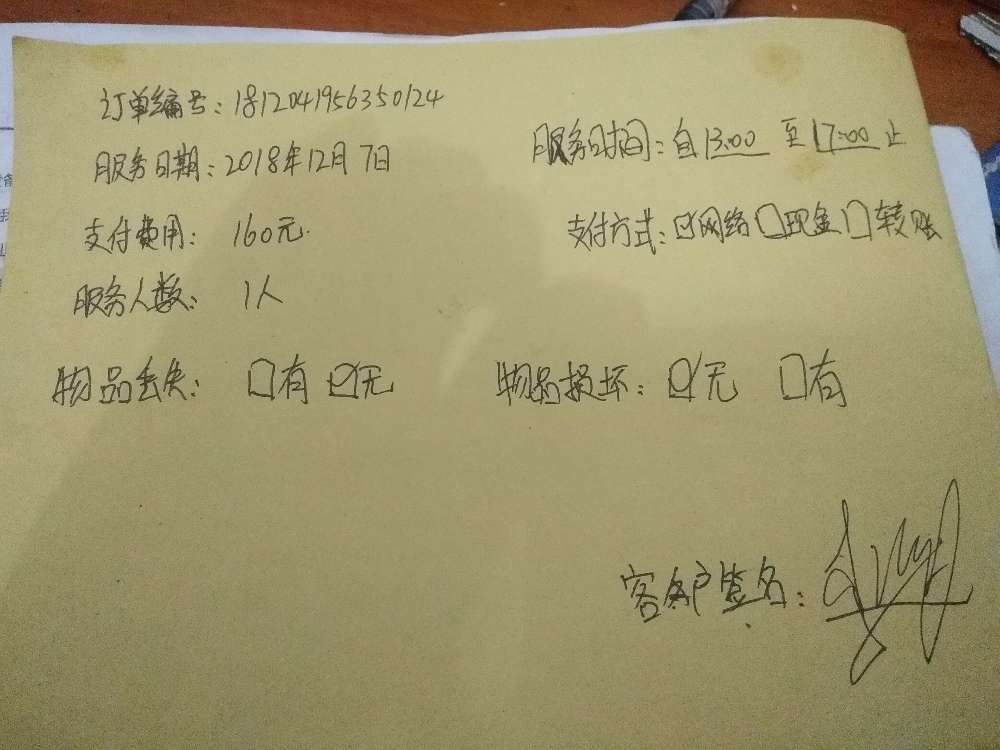 订单编号：181204195635０124
服务日期：2018年12月7日 服务时间：自13:00至17:00止
支付费用：160元 支付方式：☑网络 □现金 □转账
服务人数：1人
物品丢失：□有 ☑无 物品损坏：☑无 □有
客户签名：